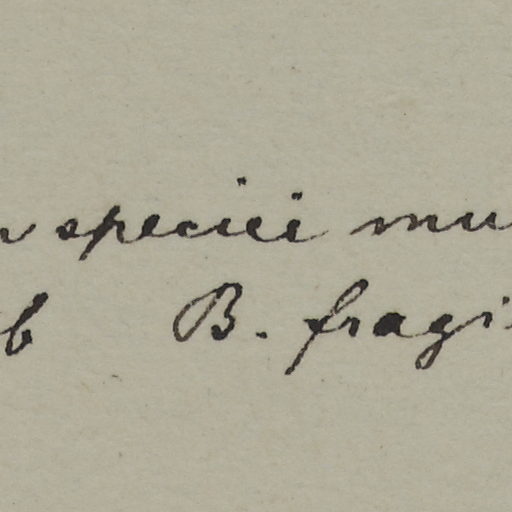 speciei mu
b B. fragi